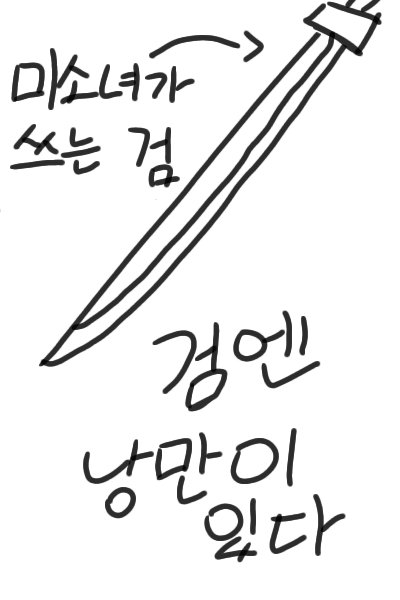 미소녀가
쓰는 검
검엔
낭만이
있다